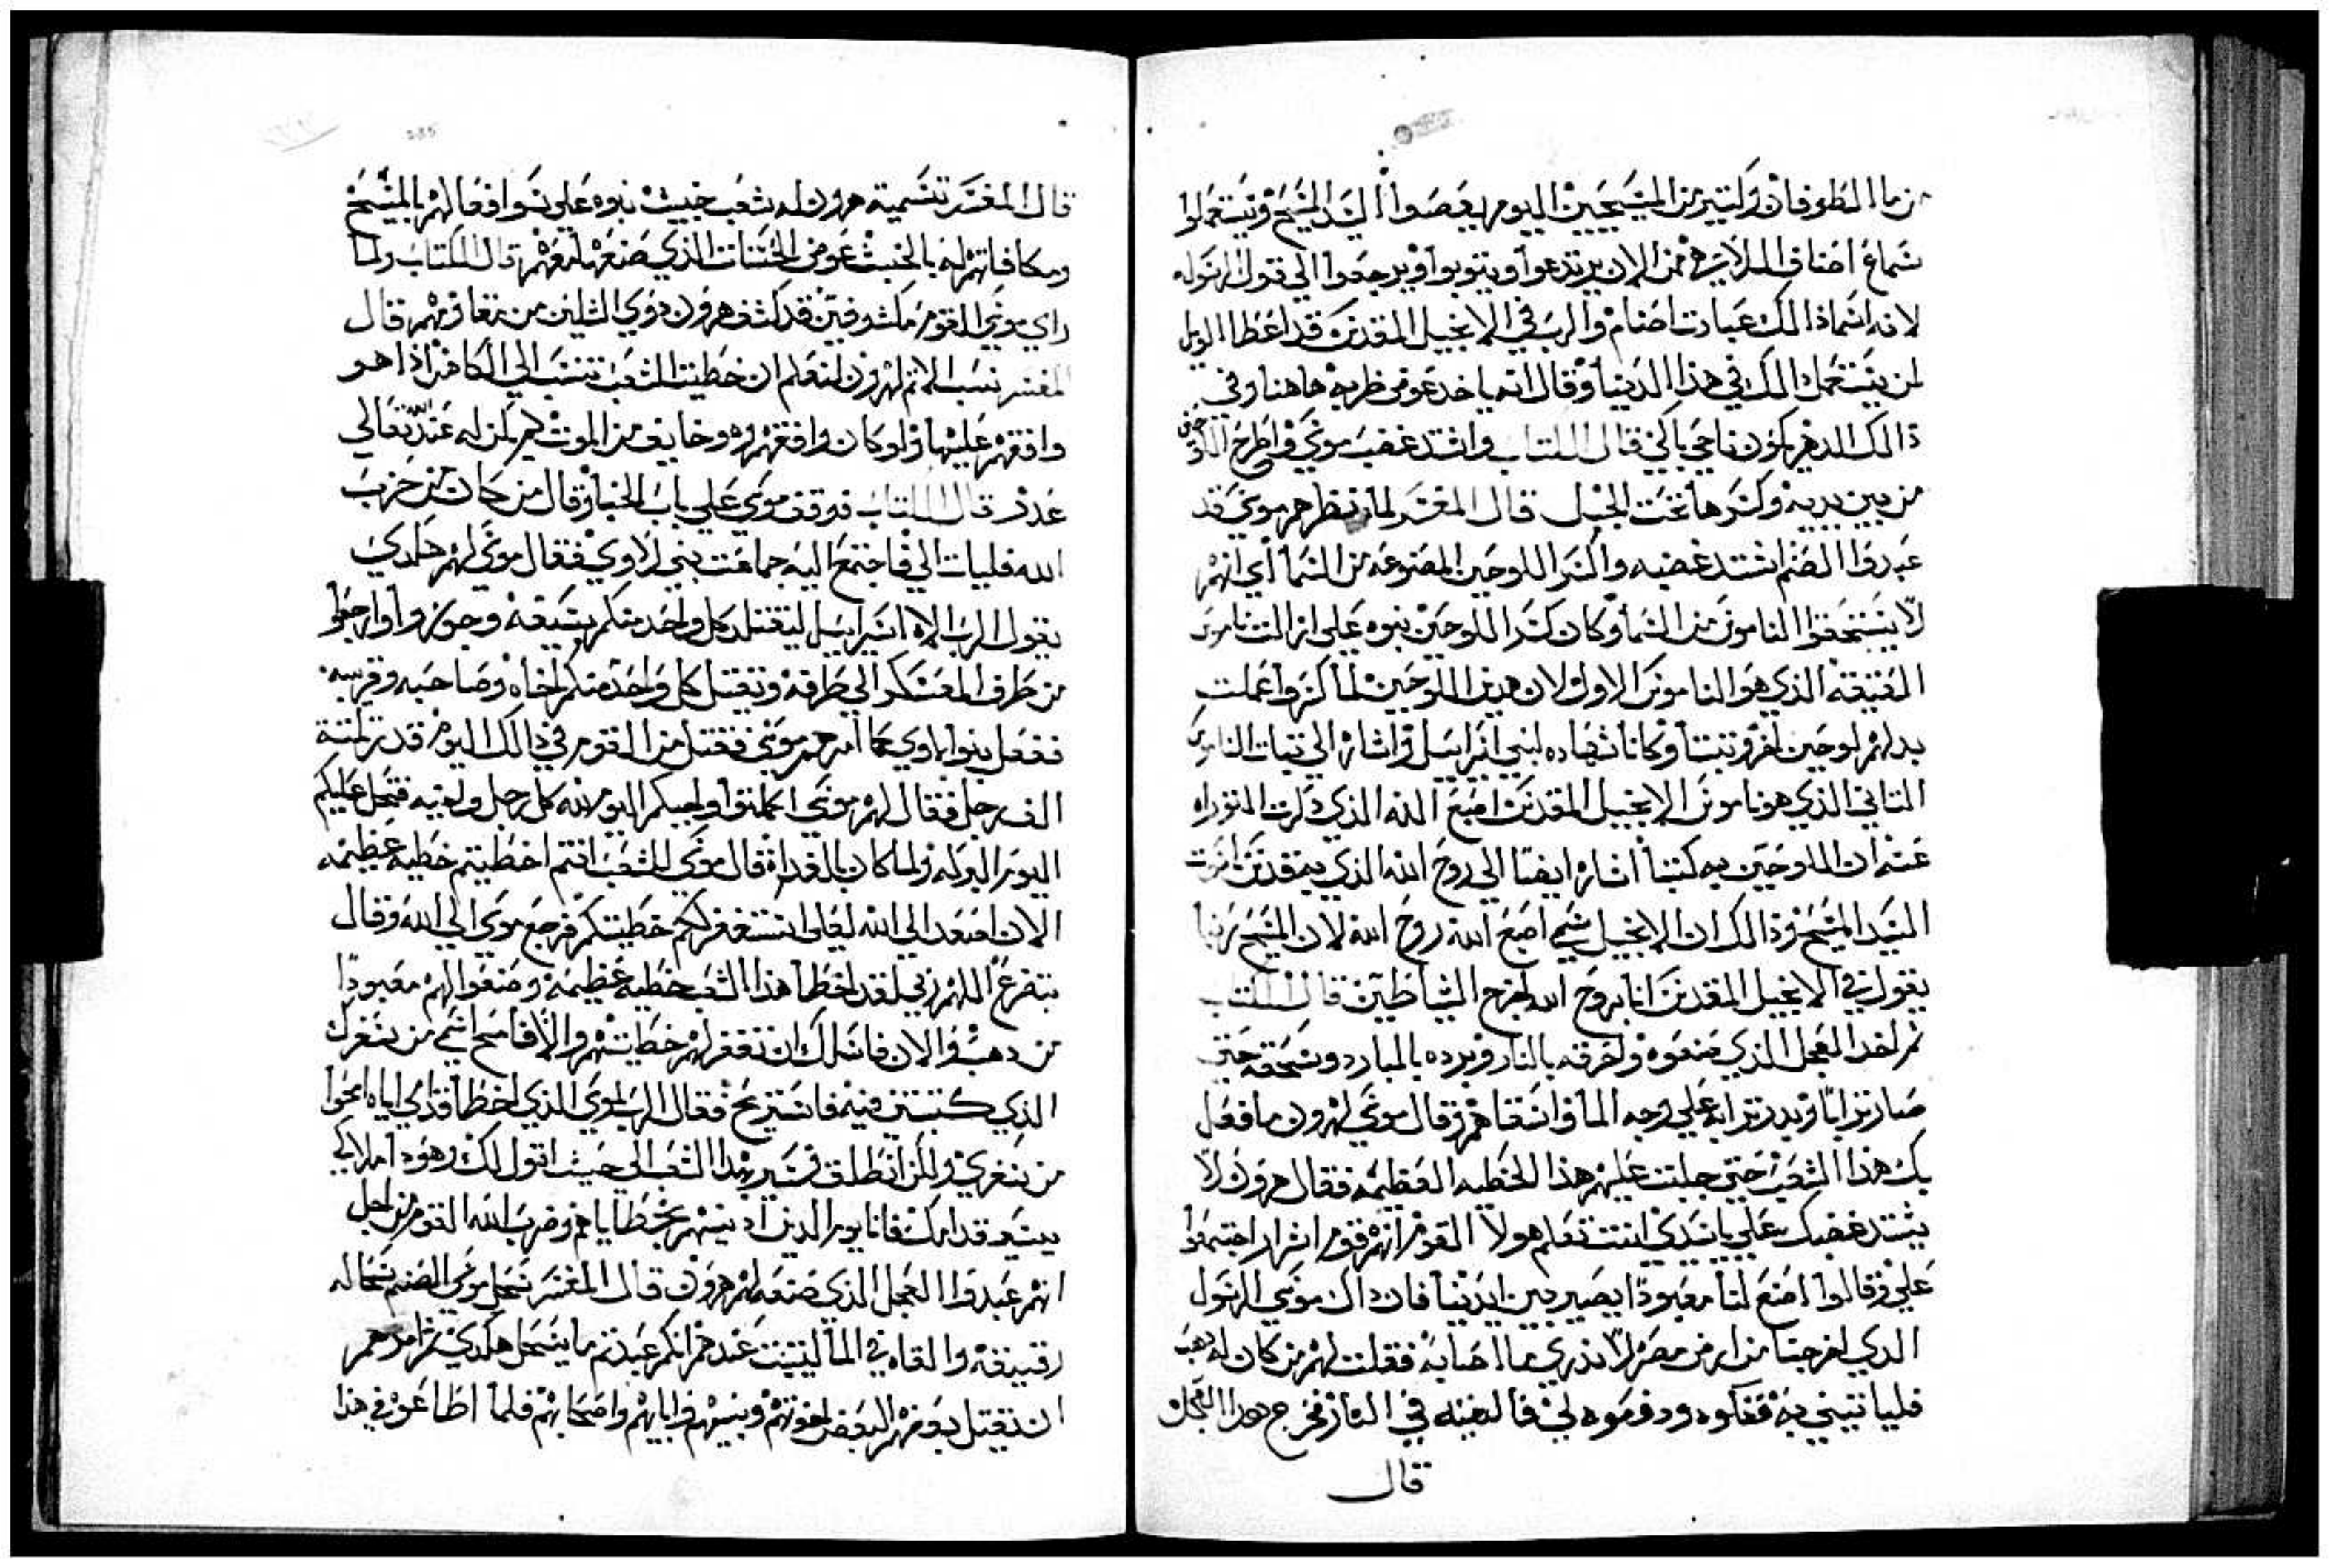 من ما الطوفان وكتير من المسيحيين اليوم يغصبوا السيد المسيح ويستعملوا
سماع اصناف الملاهي فمن الان يرتدعوا ويتوبوا ويرجعوا الي قول الرسوله
لانه اسما ذالك عبادت اصنام والرب في الانجيل المقدس قد اعطا الويل
لمن يستعمل ذالك في هذا الدنيا وقال انه ياخد عوض طربه هاهنا وفي
ذالك الدهر يكون ناحي باكي قال الكتاب واشتد غضب موسي واطرح اللوحين
من بين يديه وكسرها تحت الجبل قال المفسر لما نظرهم موسي قد
عبدوا الصنم اشتد غضبه واكسر اللوحين المصنوعه من السما اي انهم
لا يستحقوا الناموس من السما وكان كسر اللوحين نبوه علي ازالت ناموس
العتيقه الذي هو الناموس الاول ولان هدين اللوحين لما كسروا عملت
بدلهم لوحين اخر وتبتا وكانا شهاده لبني اسراييل واشاره الي تبات الناموس
التاني الذي هو ناموس الانجيل المقدس اصبع الله الذي ذكرت التوراه
عنه ان اللوحين به كتبا اشاره ايضا الي روح الله الذي بيتقدس
السيد المسيح وذالك ان الانجيل سمي اصبع الله روح الله لان المسيح ربنا
يقول في الانجيل المقدس انا بروح الله اخرج الشياطين قال الكتاب
تم اخد العجل الذي صنعوه واحرقه بالنار وبرده بالمبارد وسحقه حتي
صار ترابا وبدر ترابه علي وجه الما واسقاهم وقال موسي لهرون ما فعل
بك هذا الشعب حتي جلبت عليهم هذا الخطيه العظيمه فقال هرون لا
يشتد غضبك علي ياسيدي انت تعلم هولا القوم انهم قوم اشرار اجتمعوا
علي وقالوا اصنع لنا معبودا يصير بين ايدينا فان داك موسي الرسول
الدي اخرجنا من ارض مصر لا ندري ما اصابه فقلت لهم من كان له دهب
فلياتيني به ففكوه ودفعوه لي فالقيته في النار فخرج هدا العجل
قال
قال المفسر تسمية هرون له شعب خبيث نبوه علي سوا فعالهم بالمسيح
ومكافاتهم له بالخبث عوض الحسنات الذي صنعها معهم قال الكتاب ولما
راي موسي القوم مكشوفين قد كشف هرون دوي التلين من تعاوهم قال
المفسر نسب الاتم لهرون لتعلم ان خطيت الشعب تنسب الي الكاهن اذا هو
وافقهم عليها ولو كان وافقهم وهو خايف من الموت لم يكن له عند الله تعالي
عدر قال الكتاب فوقف موسي علي باب الخبا وقال من كان من حزب
الله فليات الي فاجتمع اليه جماعت بني لاوي فقال موسي لهم هكدي
يقول الرب الاه اسراييل ليتقلد كل واحد منكم بسيفه وجوزوا وارجعوا
من طرف المعسكر الي طرفه وتقتل كل واحد منكم اخاه وصاحبه وقريبه
ففعل بنوا لاوي كما امرهم موسي فقتل من القوم في ذالك اليوم قدر تلتة
الف رجل فقال لهم موسي اكملتوا واجبكم اليوم لله كل رجل ولابنه فتحل عليكم
اليوم البركه ولما كان بالغداه قال موسي للشعب انتم اخطيتم خطيه عظيمه
الان اصعد الي الله لعلي استغفر لكم خطيتكم فرجع موسي الي الله وقال
بتضرع اللهم ربي لقد اخطا هذا الشعب خطيه عظيمه وصنعوا لهم معبودا
من دهب والان فاسلك ان تغفر لهم خطيتهم والا فامح اسمي من سفرك
الذي كتبتني فيه فاستريح فقال الرب لموسي الذي اخطا قدامي اياه امحوا
من سفري ولكن انطلق وسير بهدا الشعب الي حيث اقول لك وهودا ملاكي
يسير قدامك فانا يوم الدين ادينهم بخطاياهم وضرب الله القوم من اجل
انهم عبدوا العجل الذي صنعه لهم هرون قال المفسر سحل موسي الصنم سحاله
رقيقه والقاه في الما ليتبت عندهم انكم عبدتم ما ينسحل هكدي تم امرهم
ان تقتل بعضهم البعض اخوتهم وبنيهم وابايهم واصحابهم فلما اطاعوه في هذا